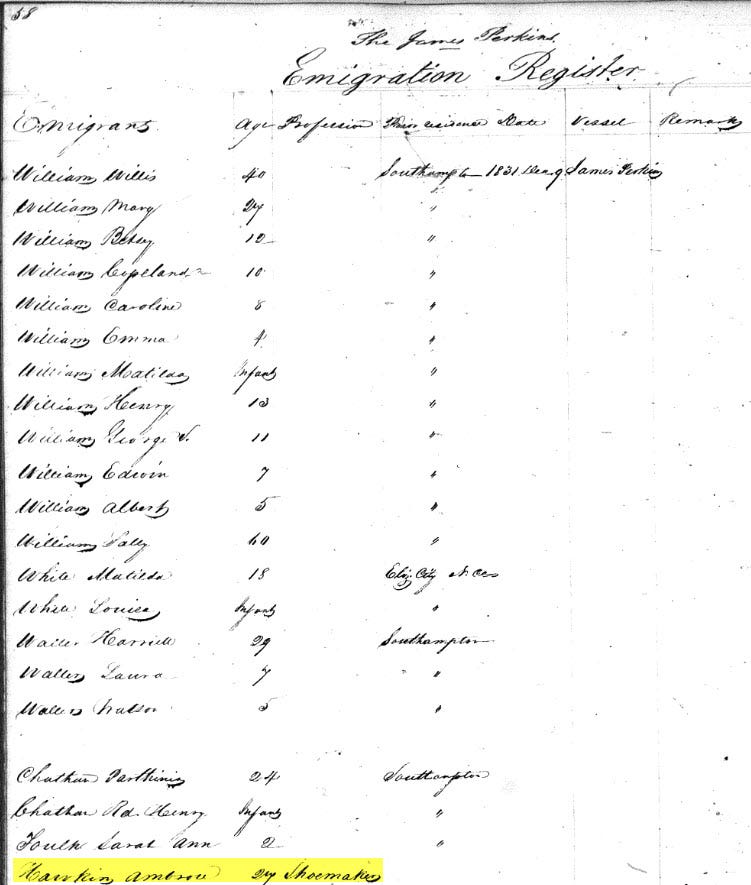 58
The James Perkins
Emigration Register
Emigrants Age Profession Their residence Date Vessel Remarks
Williams Willis 40 Southampton 1831 Dec 9 James Perkins
Williams Mary 27 "
Williams Betsy 12 "
Williams Copeland 10 "
Williams Caroline 8 "
Williams Emma 4 "
Williams Matilda Infant "
Williams Henry 13 "
Williams George 11 "
Williams Edwin 7 "
Williams Albert 5 "
Williams Sally 60 "
White Matilda 18 Eliz City
White Louisa Infant "
Waller Harriett 29 Southampton
Waller Laura 7 "
Waller 5 "
Parthinia 24 Southampton
Henry Infant "
Sarah Ann 2 "
Hawkins Ambrose 27 Shoemaker